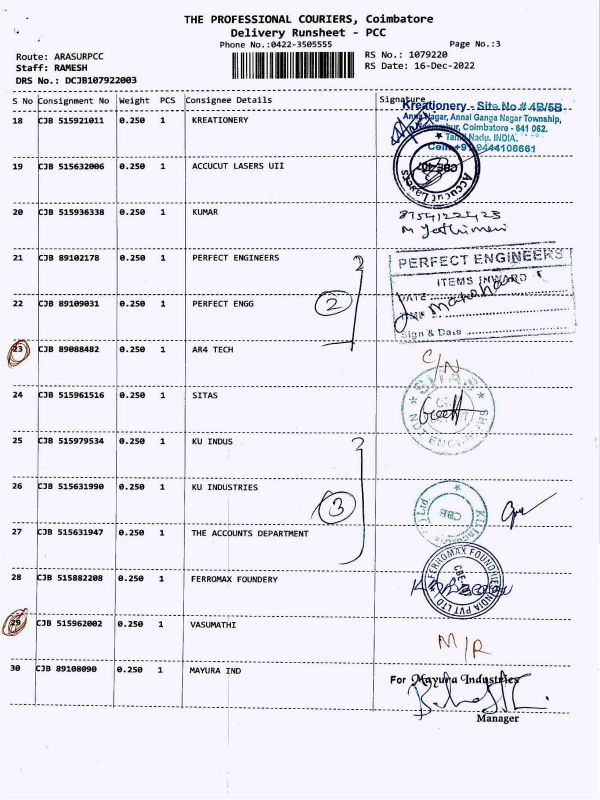 THE PROFESSIONAL COURIERS, Coimbatore
Delivery Runsheet - PCC
Phone No.:0422-3505555
Page No.:3
Route: ARASURPCC
RS No.: 1079220
Staff: RAMESH
RS Date: 16-Dec-2022
DRS No.: DCJB107922003
S No Consignment No Weight PCS Consignee Details Signature
Kreationery - Site No # 4B/5B
18 CJB 515921011 0.250 1 KREATIONERY
Anna Nagar, Annai Ganga Nagar Township,
Coimbatore - 641 062.
Tamil Nadu. INDIA.
Cell: +91 9444106661
19 CJB 515632006 0.250 1 ACCUCUT LASERS UII
Accucut Lasers
CBE-407
20 CJB 515936338 0.250 1 KUMAR
8754122423
21 CJB 89102178 0.250 1 PERFECT ENGINEERS
PERFECT ENGINEERS
ITEMS INWARD
DATE
22 CJB 89109031 0.250 1 PERFECT ENGG
2
TIME
Sign & Date
23 CJB 89088482 0.250 1 AR4 TECH
C/N
24 CJB 515961516 0.250 1 SITAS
SITAS
25 CJB 515979534 0.250 1 KU INDUS
26 CJB 515631990 0.250 1 KU INDUSTRIES
3
CBE
27 CJB 515631947 0.250 1 THE ACCOUNTS DEPARTMENT
28 CJB 515882208 0.250 1 FERROMAX FOUNDERY
FERROMAX FOUNDRIES INDIA PVT LTD
CBE
29 CJB 515962002 0.250 1 VASUMATHI
M/R
30 CJB 89108090 0.250 1 MAYURA IND
For Mayura Industries
Manager